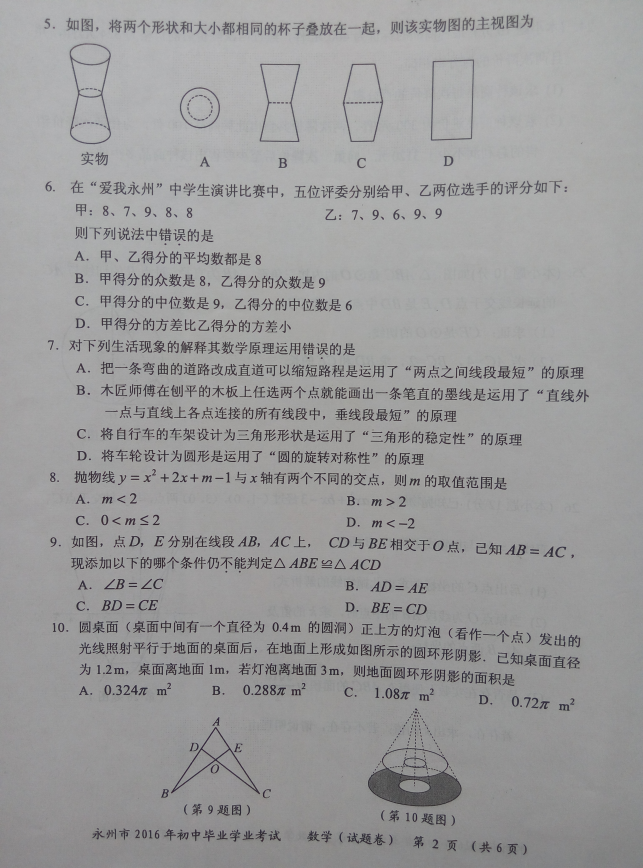 5．如图，将两个形状和大小都相同的杯子叠放在一起，则该实物图的主视图为
实物 A B C D
6． 在“爱我永州”中学生演讲比赛中，五位评委分别给甲、乙两位选手的评分如下：
甲：8、7、9、8、8 乙：7、9、6、9、9
则下列说法中错误的是
A．甲、乙得分的平均数都是 8
B．甲得分的众数是 8，乙得分的众数是 9
C．甲得分的中位数是 9，乙得分的中位数是 6
D．甲得分的方差比乙得分的方差小
7．对下列生活现象的解释其数学原理运用错误的是
A．把一条弯曲的道路改成直道可以缩短路程是运用了“两点之间线段最短”的原理
B．木匠师傅在刨平的木板上任选两个点就能画出一条笔直的墨线是运用了“直线外
一点与直线上各点连接的所有线段中，垂线段最短”的原理
C．将自行车的车架设计为三角形形状是运用了“三角形的稳定性”的原理
D．将车轮设计为圆形是运用了“圆的旋转对称性”的原理
8． 抛物线 y = x² + 2x + m − 1 与 x 轴有两个不同的交点，则 m 的取值范围是
A． m < 2 B． m > 2
C． 0 < m ≤ 2 D． m < −2
9．如图，点 D，E 分别在线段 AB，AC 上， CD 与 BE 相交于 O 点，已知 AB = AC，
现添加以下的哪个条件仍不能判定△ ABE ≌△ ACD
A． ∠B = ∠C B． AD = AE
C． BD = CE D． BE = CD
10．圆桌面（桌面中间有一个直径为 0.4m 的圆洞）正上方的灯泡（看作一个点）发出的
光线照射平行于地面的桌面后，在地面上形成如图所示的圆环形阴影．已知桌面直径
为 1.2m，桌面离地面 1m，若灯泡离地面 3m，则地面圆环形阴影的面积是
A． 0.324π m² B． 0.288π m² C． 1.08π m² D． 0.72π m²
A
D E
O
B C
（第 9 题图） （第 10 题图）
永州市 2016 年初中毕业学业考试 数学（试题卷） 第 2 页（共 6 页）